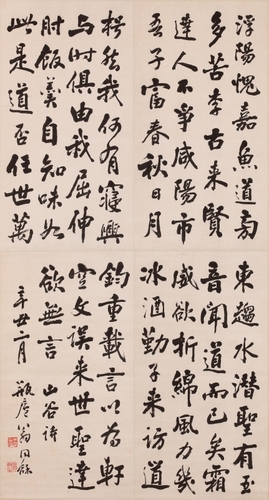 浮陽愧嘉魚道南
多苦李古来賢
達人不爭咸陽市
吾子富春秋日月
東趨水潛聖有玉
音聞道而已矣霜
威欲折綿風力幾
冰酒勤子来訪道
枵然我何有寝興
与时俱由我屈伸
肘飯羹自知味如
此是道否任世萬
鈞重載言以為軒
空文误来世聖達
欲無言 山谷诗
辛丑二月 瓶庐翁同龢